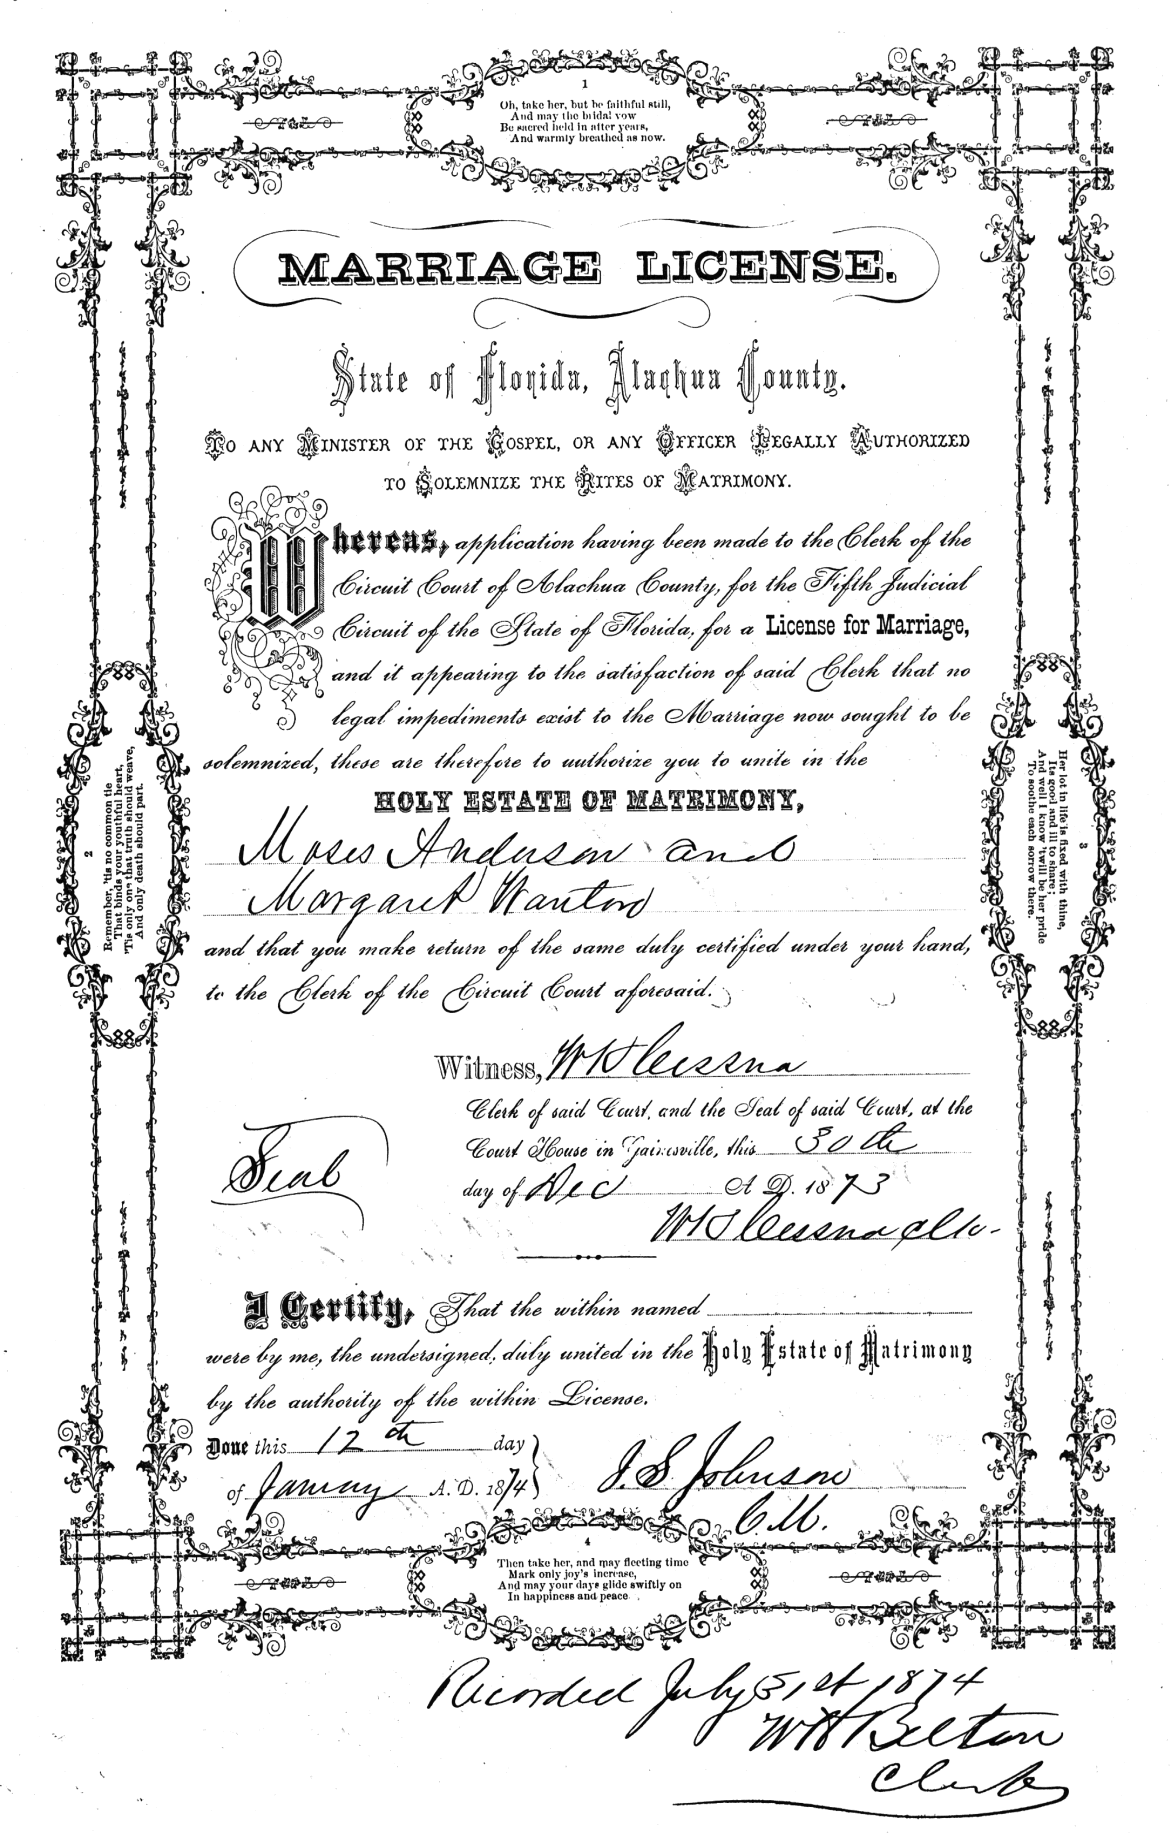 1
Oh, take her, but be faithful still,
And may the bridal vow
Be sacred held in after years,
And warmly breathed as now.
MARRIAGE LICENSE.
State of Florida, Alachua County.
TO ANY MINISTER OF THE GOSPEL, OR ANY OFFICER LEGALLY AUTHORIZED
TO SOLEMNIZE THE RITES OF MATRIMONY.
Whereas, application having been made to the Clerk of the
Circuit Court of Alachua County, for the Fifth Judicial
Circuit of the State of Florida, for a License for Marriage,
and it appearing to the satisfaction of said Clerk that no
legal impediments exist to the Marriage now sought to be
solemnized, these are therefore to authorize you to unite in the
HOLY ESTATE OF MATRIMONY,
Moses Anderson and
Margaret Wanton
and that you make return of the same duly certified under your hand,
to the Clerk of the Circuit Court aforesaid.
2
Remember, 'tis no common tie
That binds your youthful heart,
'Tis only one that truth should weave,
And only death should part.
3
Her lot in life is fixed with thine,
Its good and ill to share;
And well I know 'twill be her pride
To soothe each sorrow there.
Witness, W K Cessna
Clerk of said Court, and the Seal of said Court, at the
Court House in Gainesville, this 30th
Seal
day of Dec A D. 1873
W K Cessna Clk.
I Certify, That the within named
were by me, the undersigned, duly united in the Holy Estate of Matrimony
by the authority of the within License.
Done this 12th day
of January A. D. 1874
J. S. Johnson
C. M.
4
Then take her, and may fleeting time
Mark only joy's increase,
And may your days glide swiftly on
In happiness and peace.
Recorded July 31st 1874
W H Belton
Clerk